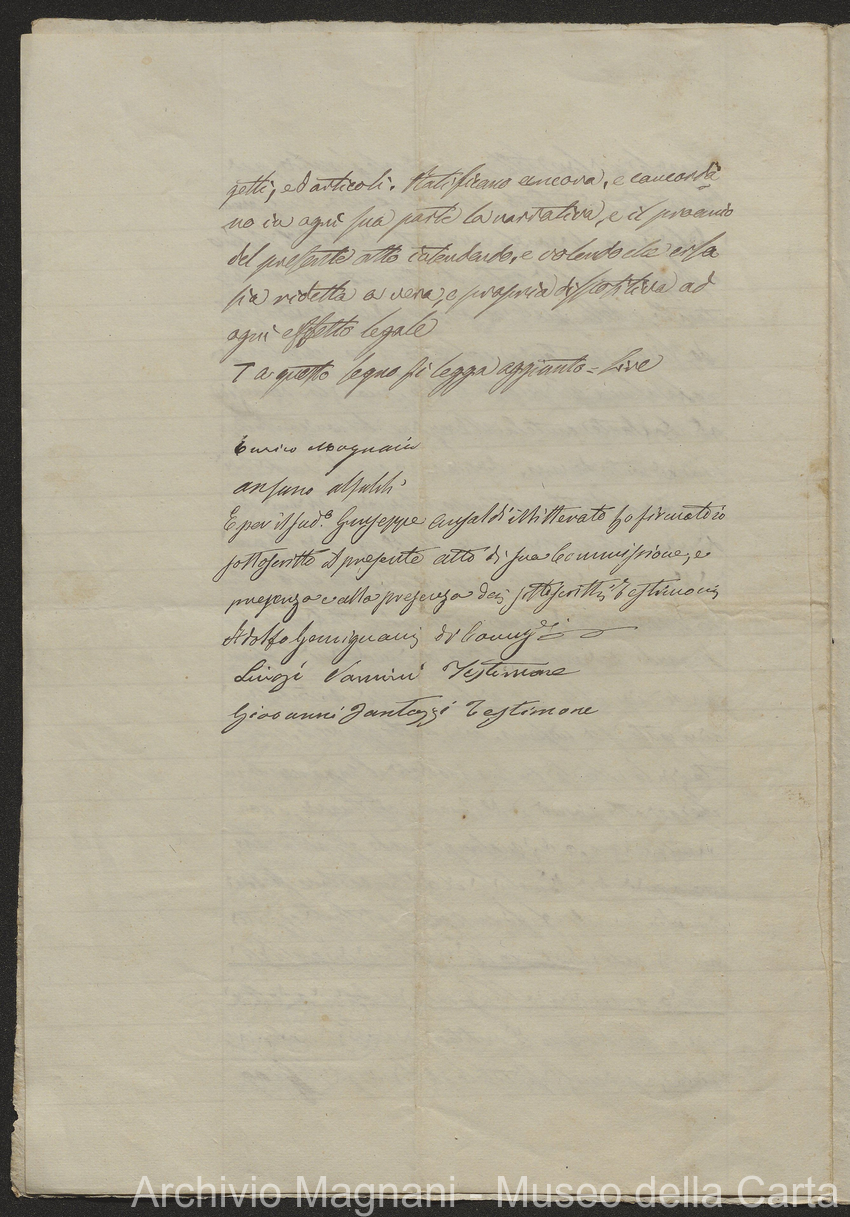 getti, ed articoli. Ratificano ancora, e concorda=
no in ogni sua parte la narrativa, e il proemio
del presente atto intendendo, e volendo che essa
sia ridetta a vera, e propria dispositiva ad
ogni effetto legale
T a questo segno si legga aggiunto = Lire
Enrico Magnani
Ansano
E per il sud.o Giuseppe Ansaldi illitterato ho firmato io
sottoscritto il presente atto di sua Commissione, e
presenza e alla presenza dei sottoscritti Testimoni
Adolfo Gemignani di
Luigi Vannini Testimone
Giovanni Fantozzi Testimone
Archivio Magnani - Museo della Carta